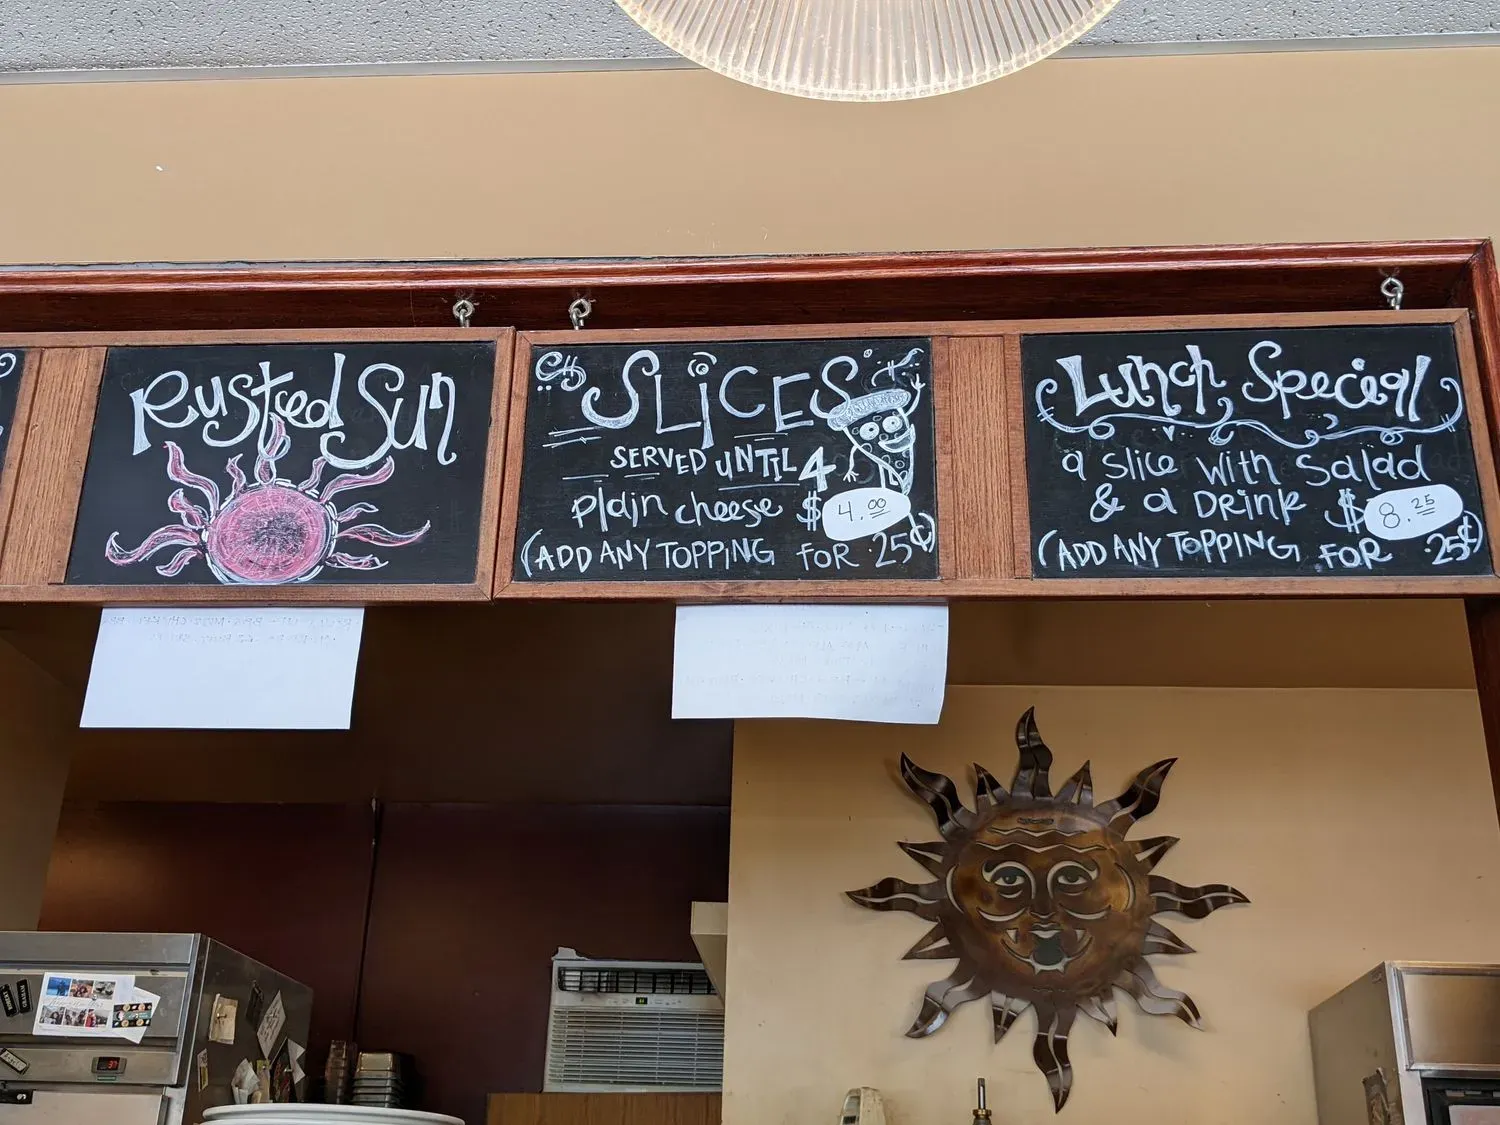 Rusted Sun
SLiCES
SERVED UNTIL 4
plain cheese $4.00
(ADD ANY TOPPING FOR .25¢)
Lunch Special
a slice with salad
& a Drink $8.25
(ADD ANY TOPPING FOR .25¢)